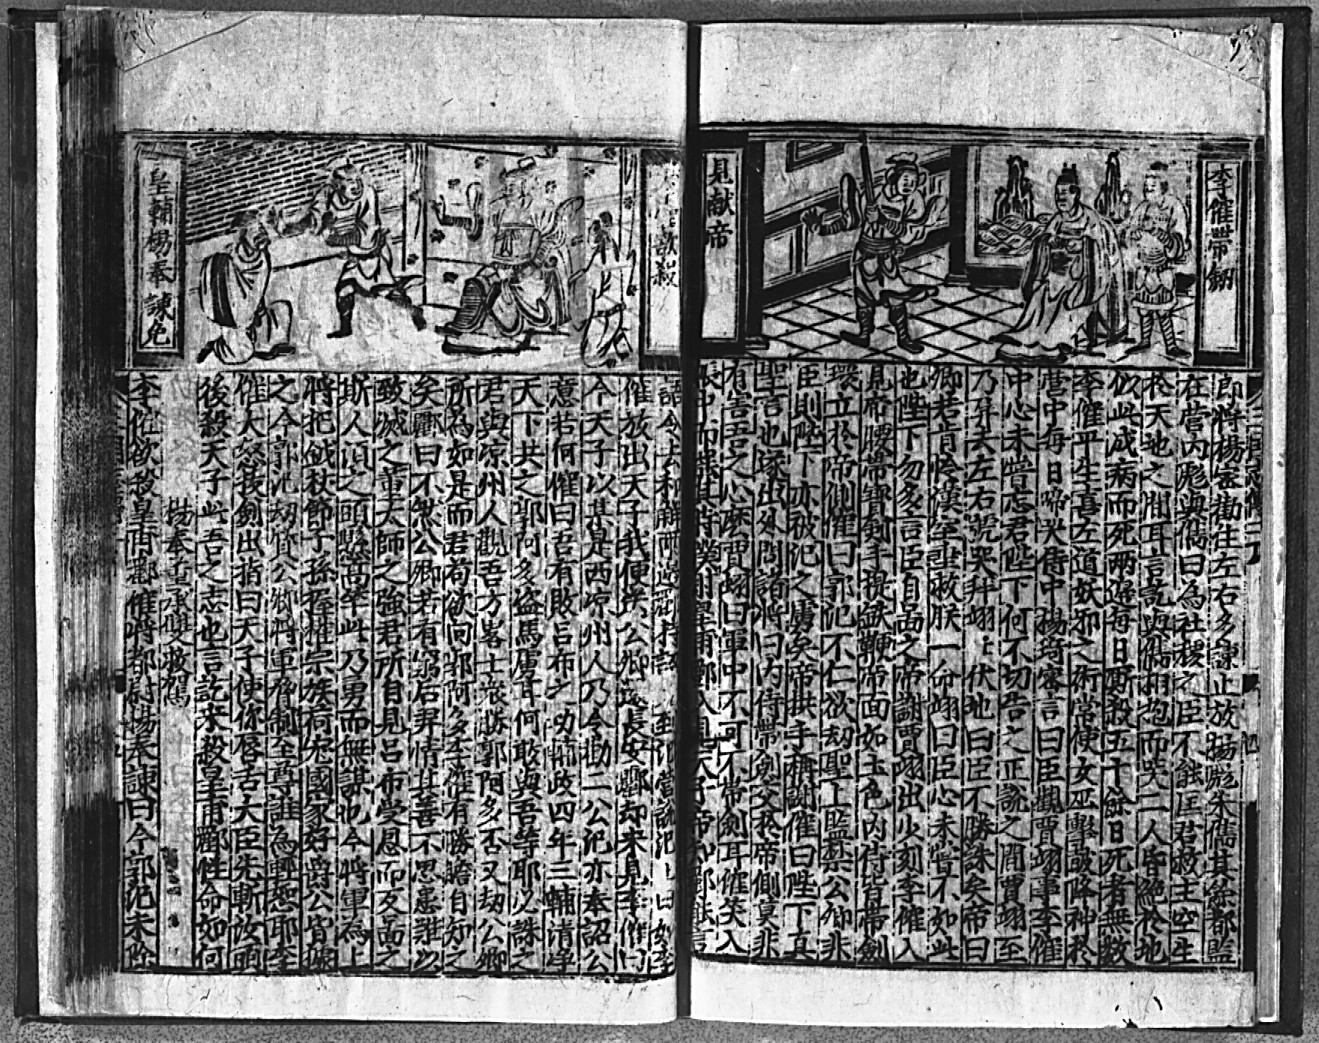 李傕帶劒
見獻帝
郎將楊密勸住左右多諫止放楊彪朱儁其餘都監
在營內彪與儁曰為社稷之臣不能匡君救主空生
於天地之間耳言訖與儁相抱而哭二人昏絕於地
儁此成病而死兩邊每日厮殺五十餘日死者無数
李傕平生喜左道妖邪之術常使女巫擊皷降神於
營中每日啼哭侍中楊琦密言曰臣觀賈翊事李傕
中心未甞忘君陛下何不切告之正說之間賈翊至
乃弃去左右號哭拜翊翊伏地曰臣不勝誅矣帝曰
卿若肯憐漢室垂救朕一命翊曰臣心未甞不如此
也陛下勿多言臣自啚之帝謝賈翊出少刻李傕入
見帝腰帶寶劍手提鉄鞭帝面如玉色內侍皆帶劍
環立於帝側傕曰郭汜不仁欲刼聖上監禁公卿非
臣則陛下亦被汜之虜矣帝拱手稱謝傕曰陛下真
聖言也遂出外問諸將曰內侍帶劍立於帝側莫非
有害吾之心麽賈翊曰軍中不可不帶劍耳傕笑入
帳中
皇輔楊奉諫免
語今去和解兩邊
傕放出天子我便送公卿還長安酈却來見李傕曰
今天子以某是西凉州人乃令勸二公汜亦奉詔公
意若何傕曰吾有敗呂布之功輔政四年三輔清凈
天下共之郭阿多盗馬虜耳何敢與吾等耶以誅之
君與凉州人觀吾方畧士衆勝郭阿多否又刼公卿
所為如是而君苟欲向郭阿多李傕有勝膽自知之
矣酈曰不然公卿若有窮后羿恃其善不思患難以
致滅之董太師之強君所自見呂布受恩而反啚之
斯人須之頭懸高竿此乃勇而無謀也今將軍為上
將把鉞杖節子孫握權宗族荷寵國家好爵公皆據
之今郭汜刼質公卿將軍脅制至尊誰為輕恕耶李
傕大怒拔劍出指曰天子使你唇舌大臣先斬汝頭
後殺天子此吾之志也言訖來殺皇甫酈性命如何
楊奉董承雙救駕
李傕欲殺皇甫酈傕將都尉楊奉諫曰今郭汜未除